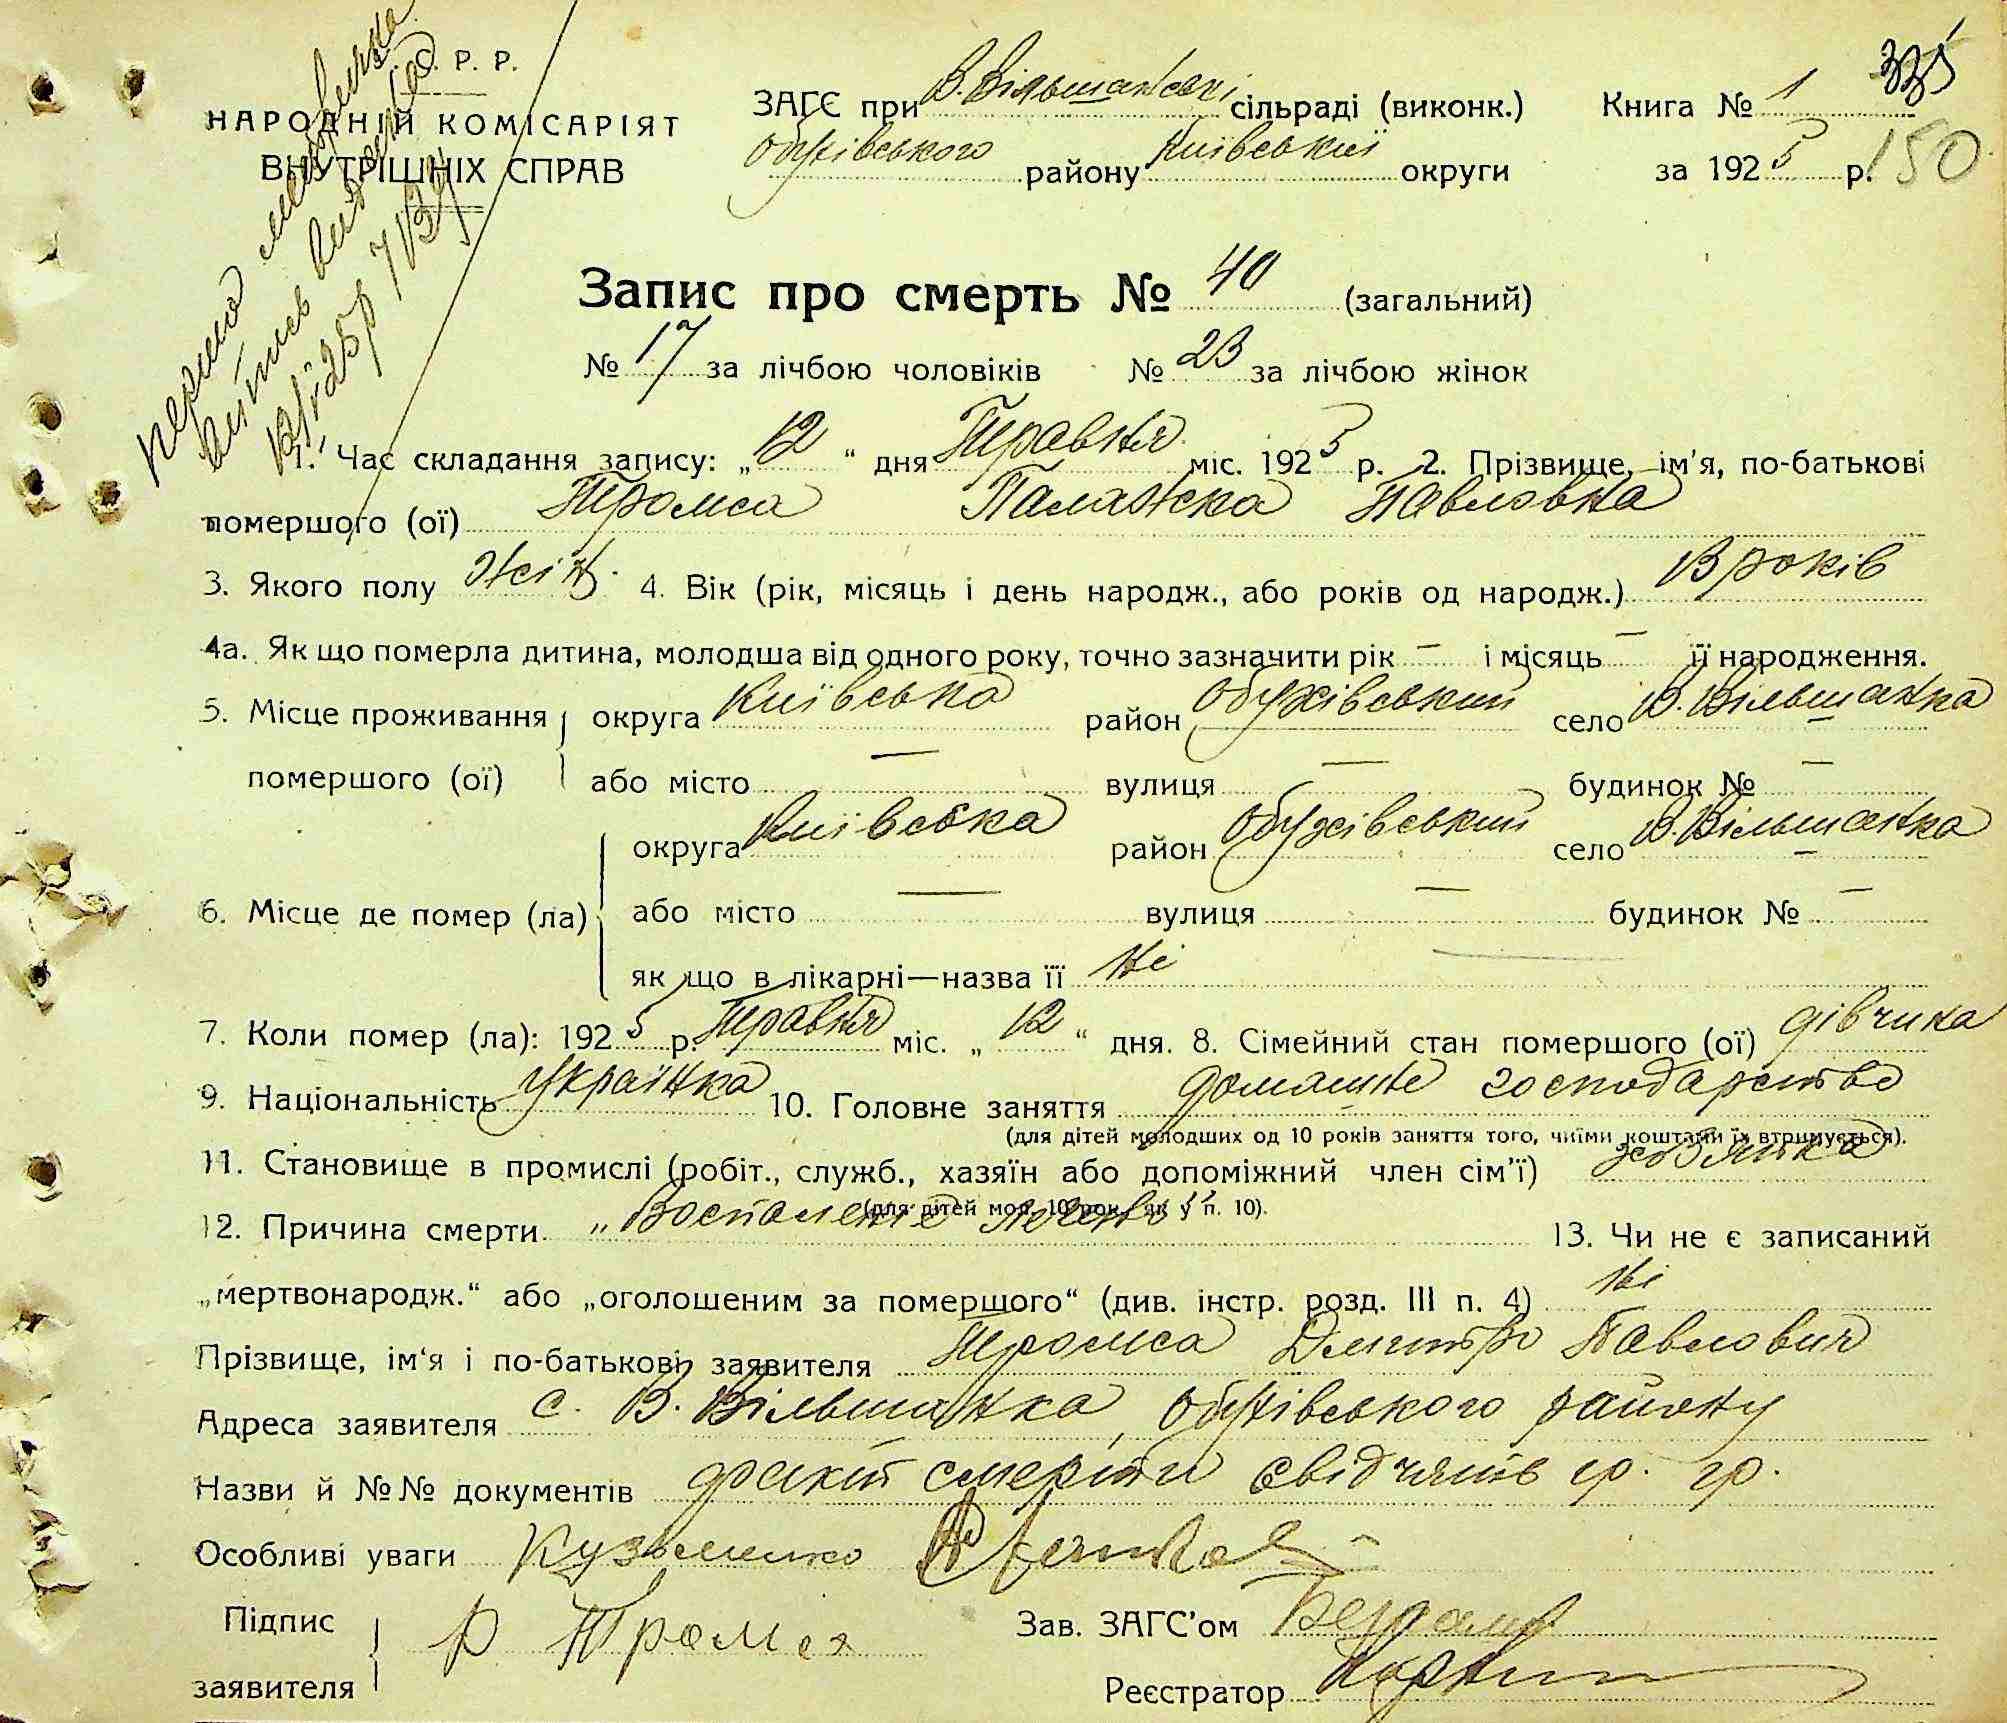 С. Р. Р.
НАРОДНІЙ КОМІСАРІЯТ
ВНУТРІШНІХ СПРАВ
ЗАГС при В. Вільшанські сільраді (виконк.) Книга № 1 335
Обухівського району Київської округи за 1925 р. 150
Запис про смерть № 40 (загальний)
№ 17 за лічбою чоловіків № 23 за лічбою жінок
1. Час складання запису: „12“ дня Травня міс. 1925 р. 2. Прізвище, ім'я, по-батькові
помершого (ої) Тромса Палажка Павловна
3. Якого полу Жін. 4. Вік (рік, місяць і день народж., або років од народж.) 13 років
4а. Як що померла дитина, молодша від одного року, точно зазначити рік – і місяць – її народження.
5. Місце проживання округа Київська район Обухівський село В. Вільшанка
помершого (ої) або місто — вулиця — будинок № —
округа Київська район Обухівський село В. Вільшанка
6. Місце де помер (ла) або місто — вулиця — будинок № —
як що в лікарні—назва її Ні
7. Коли помер (ла): 1925 р. Травня міс. „12“ дня. 8. Сімейний стан помершого (ої) дівчина
9. Національність Українка 10. Головне заняття домашне господарство
(для дітей молодших од 10 років заняття того, чиїми коштами їх втримується).
11. Становище в промислі (робіт., служб., хазяїн або допоміжний член сім'ї)
(для дітей мол. 10 рок. як у п. 10).
12. Причина смерти „Воспаленіе 13. Чи не є записаний
„мертвонародж.“ або „оголошеним за померщого“ (див. інстр. розд. III п. 4) Ні
Прізвище, ім'я і по-батькові заявителя Тромса Дмитро Павлович
Адреса заявителя с. В. Вільшанка, Обухівського району
Назви й №№ документів факт смерти свідчать гр. гр.
Особливі уваги Кузьменко
Підпис
заявителя Тромса
Зав. ЗАГС'ом
Реєстратор